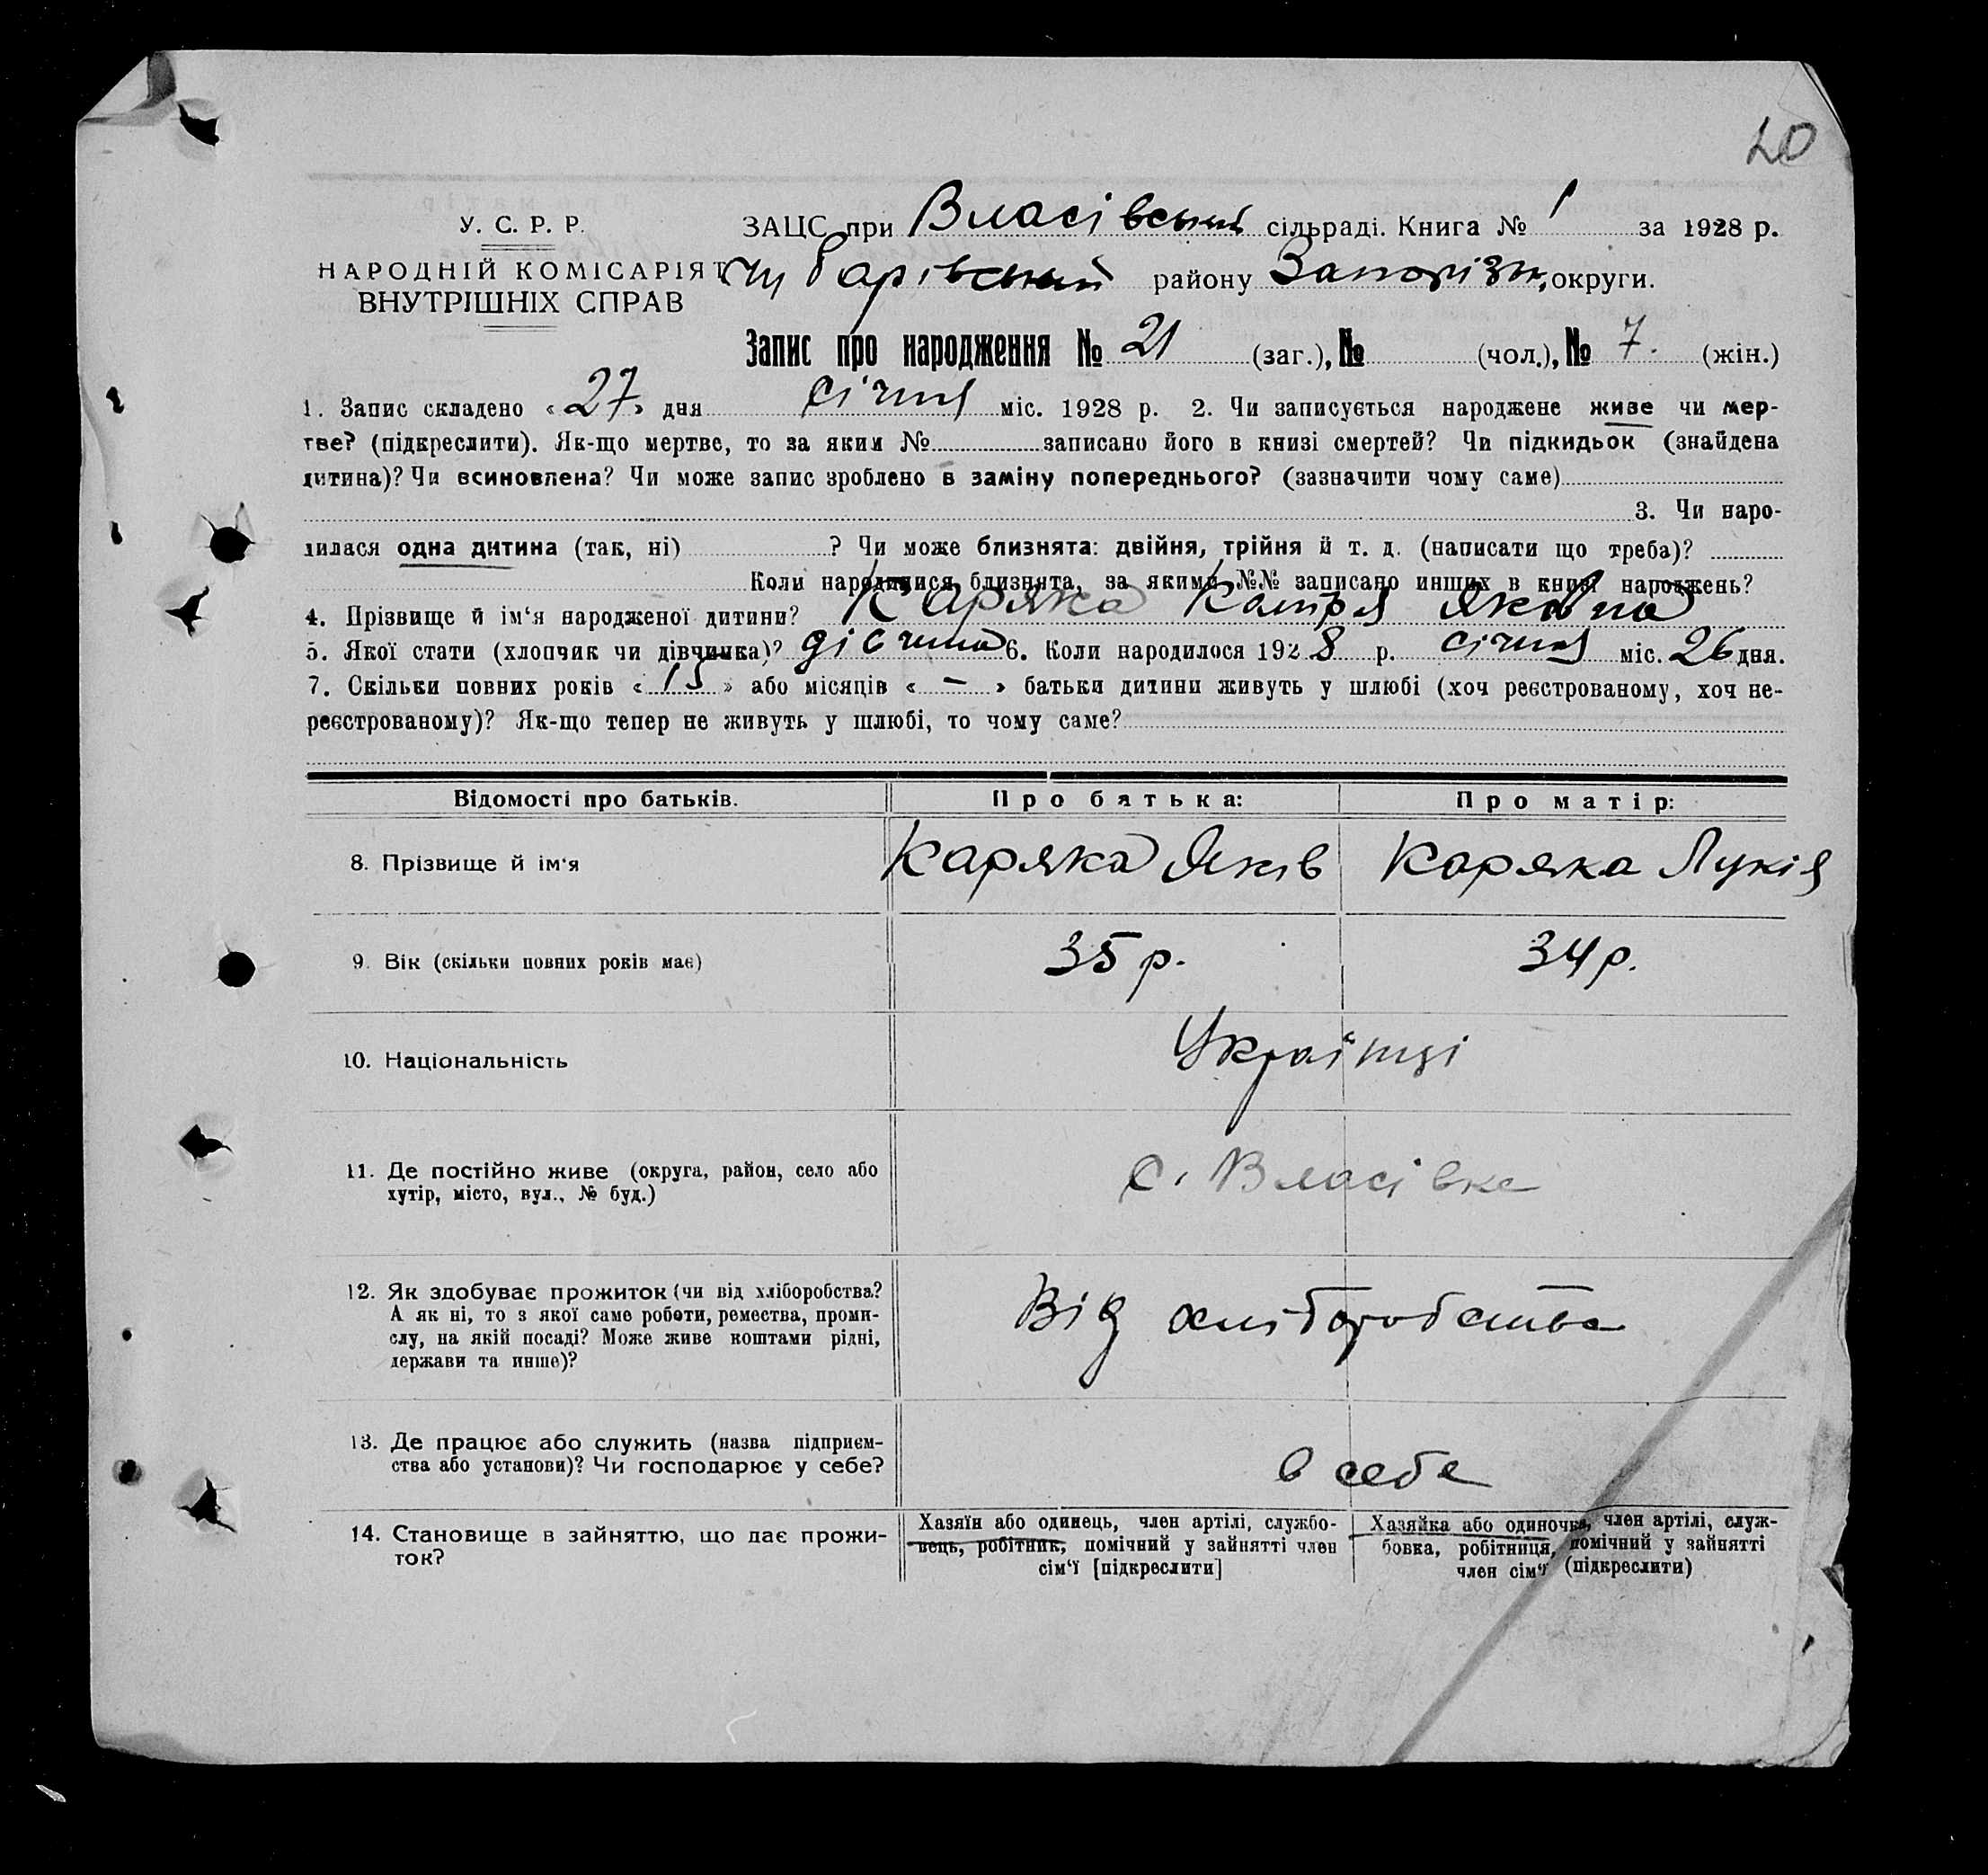 20
У. С. Р. Р.
НАРОДНІЙ КОМІСАРІЯТ
ВНУТРІШНІХ СПРАВ
ЗАЦС при Власівській сільраді. Книга № 1 за 1928 р.
Чубарівський району Запорізьк. округи.
Запис про народження № 21 (заг.), № (чол.), № 7. (жін.)
1. Запис складено «27» дня січня міс. 1928 р. 2. Чи записується народжене живе чи мер-
тве? (підкреслити). Як-що мертве, то за яким № записано його в книзі смертей? Чи підкидьок (знайдена
дитина)? Чи всиновлена? Чи може запис зроблено в заміну попереднього? (зазначити чому саме)
3. Чи наро-
дилася одна дитина (так, ні) ? Чи може близнята: двійня, трійня й т. д. (написати що треба)?
Коли народилися близнята, за якими №№ записано инших в книзі народжень?
4. Прізвище й ім‘я народженої дитини? Каряка Катря Яковна
5. Якої стати (хлопчик чи дівчинка)? дівчина 6. Коли народилося 1928 р. січня міс. 26 дня.
7. Скільки повних років «15» або місяців «—» батьки дитини живуть у шлюбі (хоч реєстрованому, хоч не-
реєстрованому)? Як-що тепер не живуть у шлюбі, то чому саме?
Відомості про батьків. Про батька: Про матір:
8. Прізвище й ім‘я Каряка Яків Каряка Лукія
9. Вік (скільки повних років має) 35 р. 34 р.
10. Національність Українці
11. Де постійно живе (округа, район, село або
хутір, місто, вул., № буд.)
с. Власівка
12. Як здобуває прожиток (чи від хліборобства?
А як ні, то з якої саме роботи, ремества, проми-
слу, на якій посаді? Може живе коштами рідні,
держави та инше)?
Від хліборобства
13. Де працює або служить (назва підприєм-
ства або установи)? Чи господарює у себе?
в себе
14. Становище в зайняттю, що дає прожи-
ток?
Хазяїн або одинець, член артілі, службо-
вець, робітник, помічний у зайнятті член
сім‘ї [підкреслити]
Хазяйка або одиночка, член артілі, служ-
бовка, робітниця, помічний у зайнятті
член сім‘ї (підкреслити)